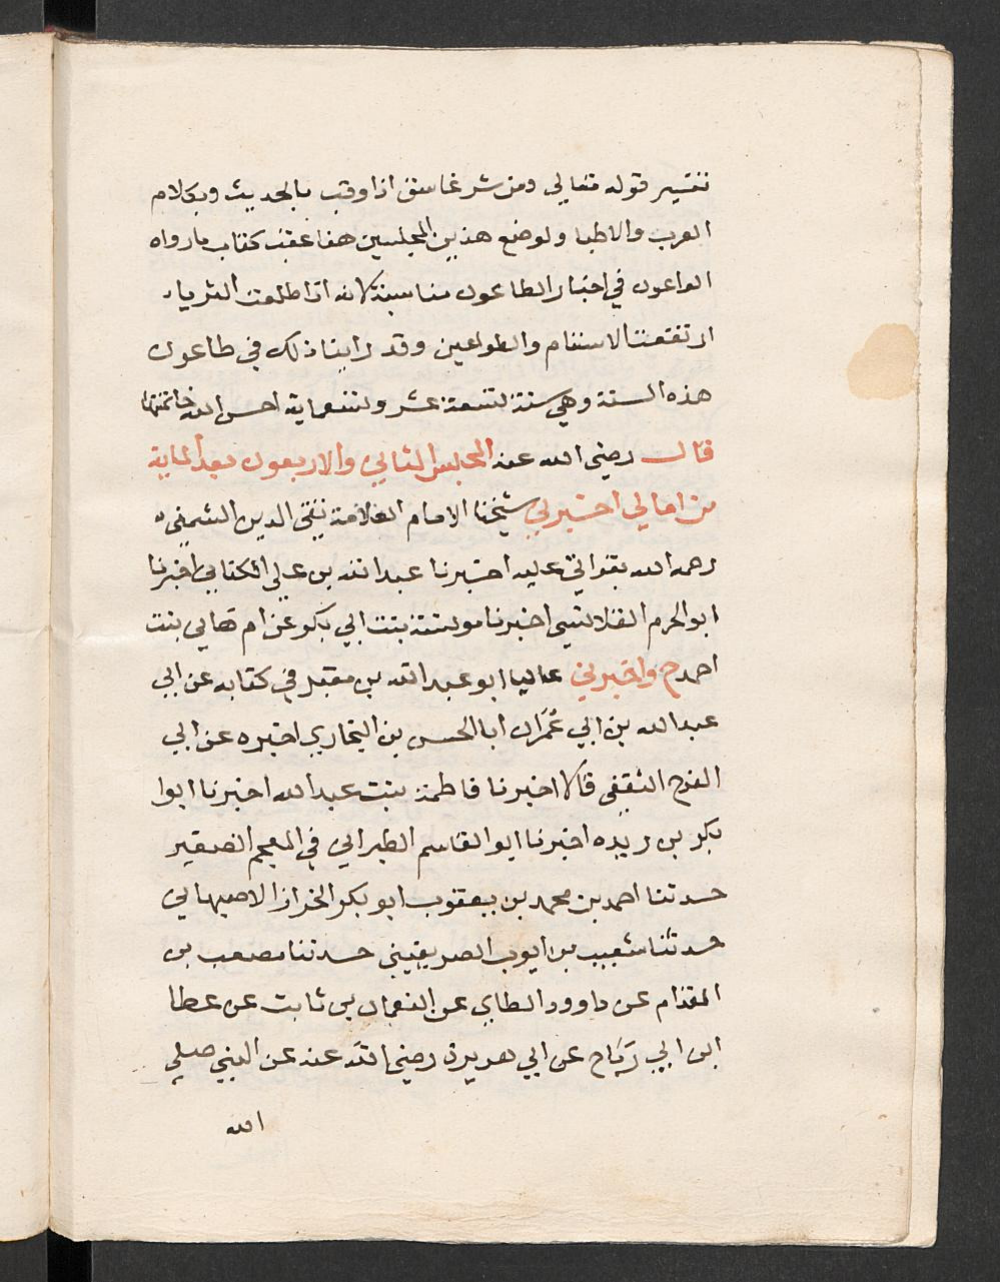 تفسير قوله تعالي ومن شر غاسق اذا وقب بالحديث وبكلام
العرب والاطبا ولوضع هذين المجلسين هنا عقب كتاب ما رواه
الواعون في اخبار الطاعون مناسبة لانه اذا طلعت الثريا
ارتفعت الاسقام والطواعين وقد راينا ذلك في طاعون
هذه السنة وهي سنة تسعة عشر وتسعماية احسن الله خاتمتها
قال رضي الله عنه المجلس الثاني والاربعون بعد الماية
من امالي اخبرني شيخنا الامام العلامة تقي الدين الشمني
رحمه الله بقراتي عليه اخبرنا عبد الله بن علي الكناني اخبرنا
ابو الحرم القلانسي اخبرنا مونسة بنت ابي بكر عن ام هاني بنت
احمد ح واخبرني عاليا ابو عبد الله بن مقبل في كتابه عن ابي
عبد الله بن ابي عُمَر ان ابا الحسن بن البخاري اخبره عن ابي
الفرج الثقفي قالا اخبرنا فاطمة بنت عبد الله اخبرنا ابوا
بكر بن ريده اخبرنا ابو القاسم الطبراني في المعجم الصغير
حدثنا احمد بن محمد بن يعقوب ابو بكر الخزاز الاصبهاني
حدثنا شعيب بن ايوب الصريفيني حدثنا مصعب بن
المقدام عن داوود الطاي عن النعمان بن ثابت عن عطا
ابن ابي رَبَاح عن ابي هريرة رضي الله عنه عن النبي صلي
الله